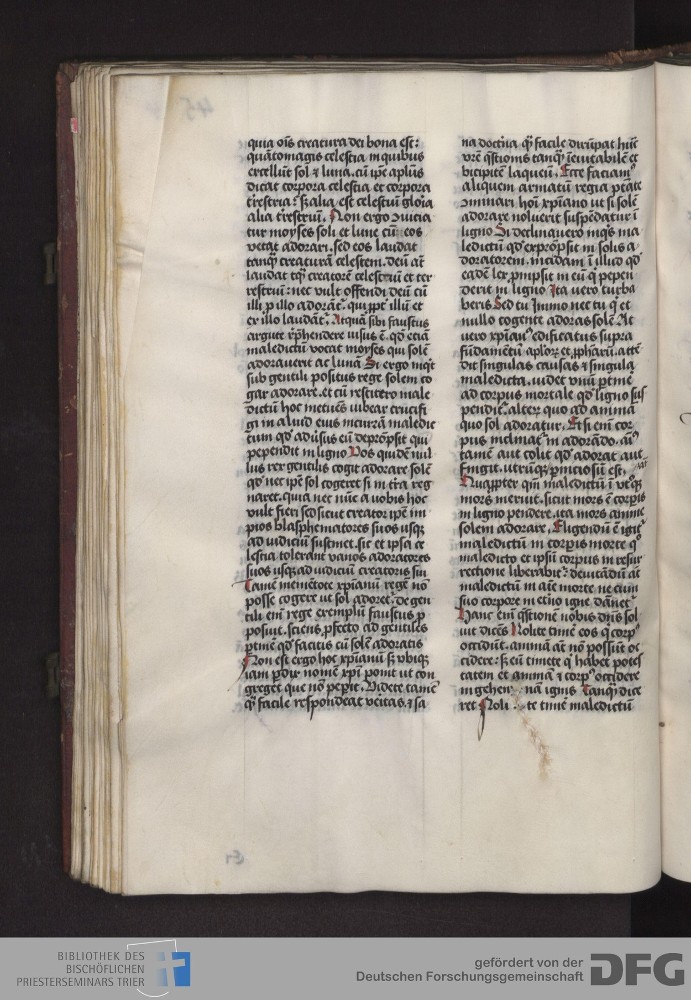 quia oīs creatura dei bona est:
quātomagis celestia in quibus
excellūt sol ⁊ luna. cū ip̄e ap̄lus
dicat corpora celestia et corpora
trestria: s; alia est celestiū gloīa
alia trestriū. Non ergo
tur moyses soli et lune cū eos
vetat adorari. sed eos laudat
tanq̄ creaturā celestem. deū at̄
laudat tq̄ creatorē celestiū et ter
restriū: nec vult offendi deū cū
illi p illo adorāt̄. qui ppt̄ illū et
ex illo laudāt̄. Atquā sibi faustus
argute rp̄hendere uisus ē. qd̄ etiā
maledictū vocat moyses qui solē
adorauerit ac lunā Si ergo inq't
sub gentili positus rege solem co
gar adorare. et cū restitero male
dictū hoc metuēs iubear crucifi
gi in aliud eius incurrā maledic
tum qd̄ aduersus eū deprōpsit qui
pependit in ligno Vos quidē nul
lus rex gentilis cogit adorare solē
qd̄ nec ip̄e sol cogeret si in t̄ra reg
naret. quia nec nūc a uobis hoc
vult fieri sed sicut creator ip̄e im
pios blasphematores suos usq;
ad iudiciū sustinet. sic et ipsa ce
lestia tolerant vanos adoratores
suos usq; ad iudiciū creatoris sui
Tamē mementote xp̄ianū regē nō
posse cogere ut sol adoret̄. de gen
tili em̄ rege exemplū faustus p
posuit. sciens pfecto ad gentiles
ptinē qd̄ facitis cū solē adoratis
Non est ergo hoc xp̄ianū s; vbiq;
iam pdix nomē xp̄i ponit ut con
greget que nō pepit. Videte tamē
q̄ facile respondeat veritas. ⁊ sa
na doctrīa q̄ facile dirūpat hūc
vr̄ē q̄stionis tanq̄ īeuitabilē et
bicipitē laqueū. Ecce faciam'
aliquem armatū regia ptāte
ōminari hoī xp̄iano ut si solē
adorare noluerit suspēdatur ī
ligno Si declinauero inq's ma
ledictū qd̄ exprōpsit in solis a
doratorem. incidam ī illud qd̄
eadē lex prōpsit in eū q' pepen
derit in ligno Ita uero turba
beris Sed tu Immo nec tu q' et
nullo cogente adoras solē At
uero xp̄ian' edificatus supra
fūdamētū aplor; et ppharū. attē
dit singulas causas ⁊ singula
maledicta. videt vnū ptinē
ad corpus mortale qd̄ ligno sus
pendit̄. alter; quo ad animā
quo sol adoratur. Et si em̄ cor
pus inclinat̄ in adorādo. ai'
tamē aut colit qd̄ adorat aut
fingit. utrūq; pniciosū est.
Quappter qm̄ maledictū ī utq;
mors meruit. sicut mors ē corpis
in ligno pendere. ita mors anime
solem adorare. Eligendū ē igit̄
maledictū in corpis morte q'
maledicto et ipsū corpus in resur
rectione liberabit̄. deuitādū at̄
maledictū in aīe morte ne cum
suo corpore in et̄no igne dāuet̄
Hanc em̄ q̄stionē nobis dn̄s sol
uit dicēs Nolite timē eos q' corp'
occidūt. animā at̄ nō possūt oc
cidere: s; eū timete q' habet potes
tatem et animā ⁊ corp' occidere
in gehenna ignis Tanq̄ dice
ret Noli te timē maledictū
BIBLIOTHEK DES
BISCHÖFLICHEN
PRIESTERSEMINARS TRIER
gefördert von der
Deutschen Forschungsgemeinschaft
DFG